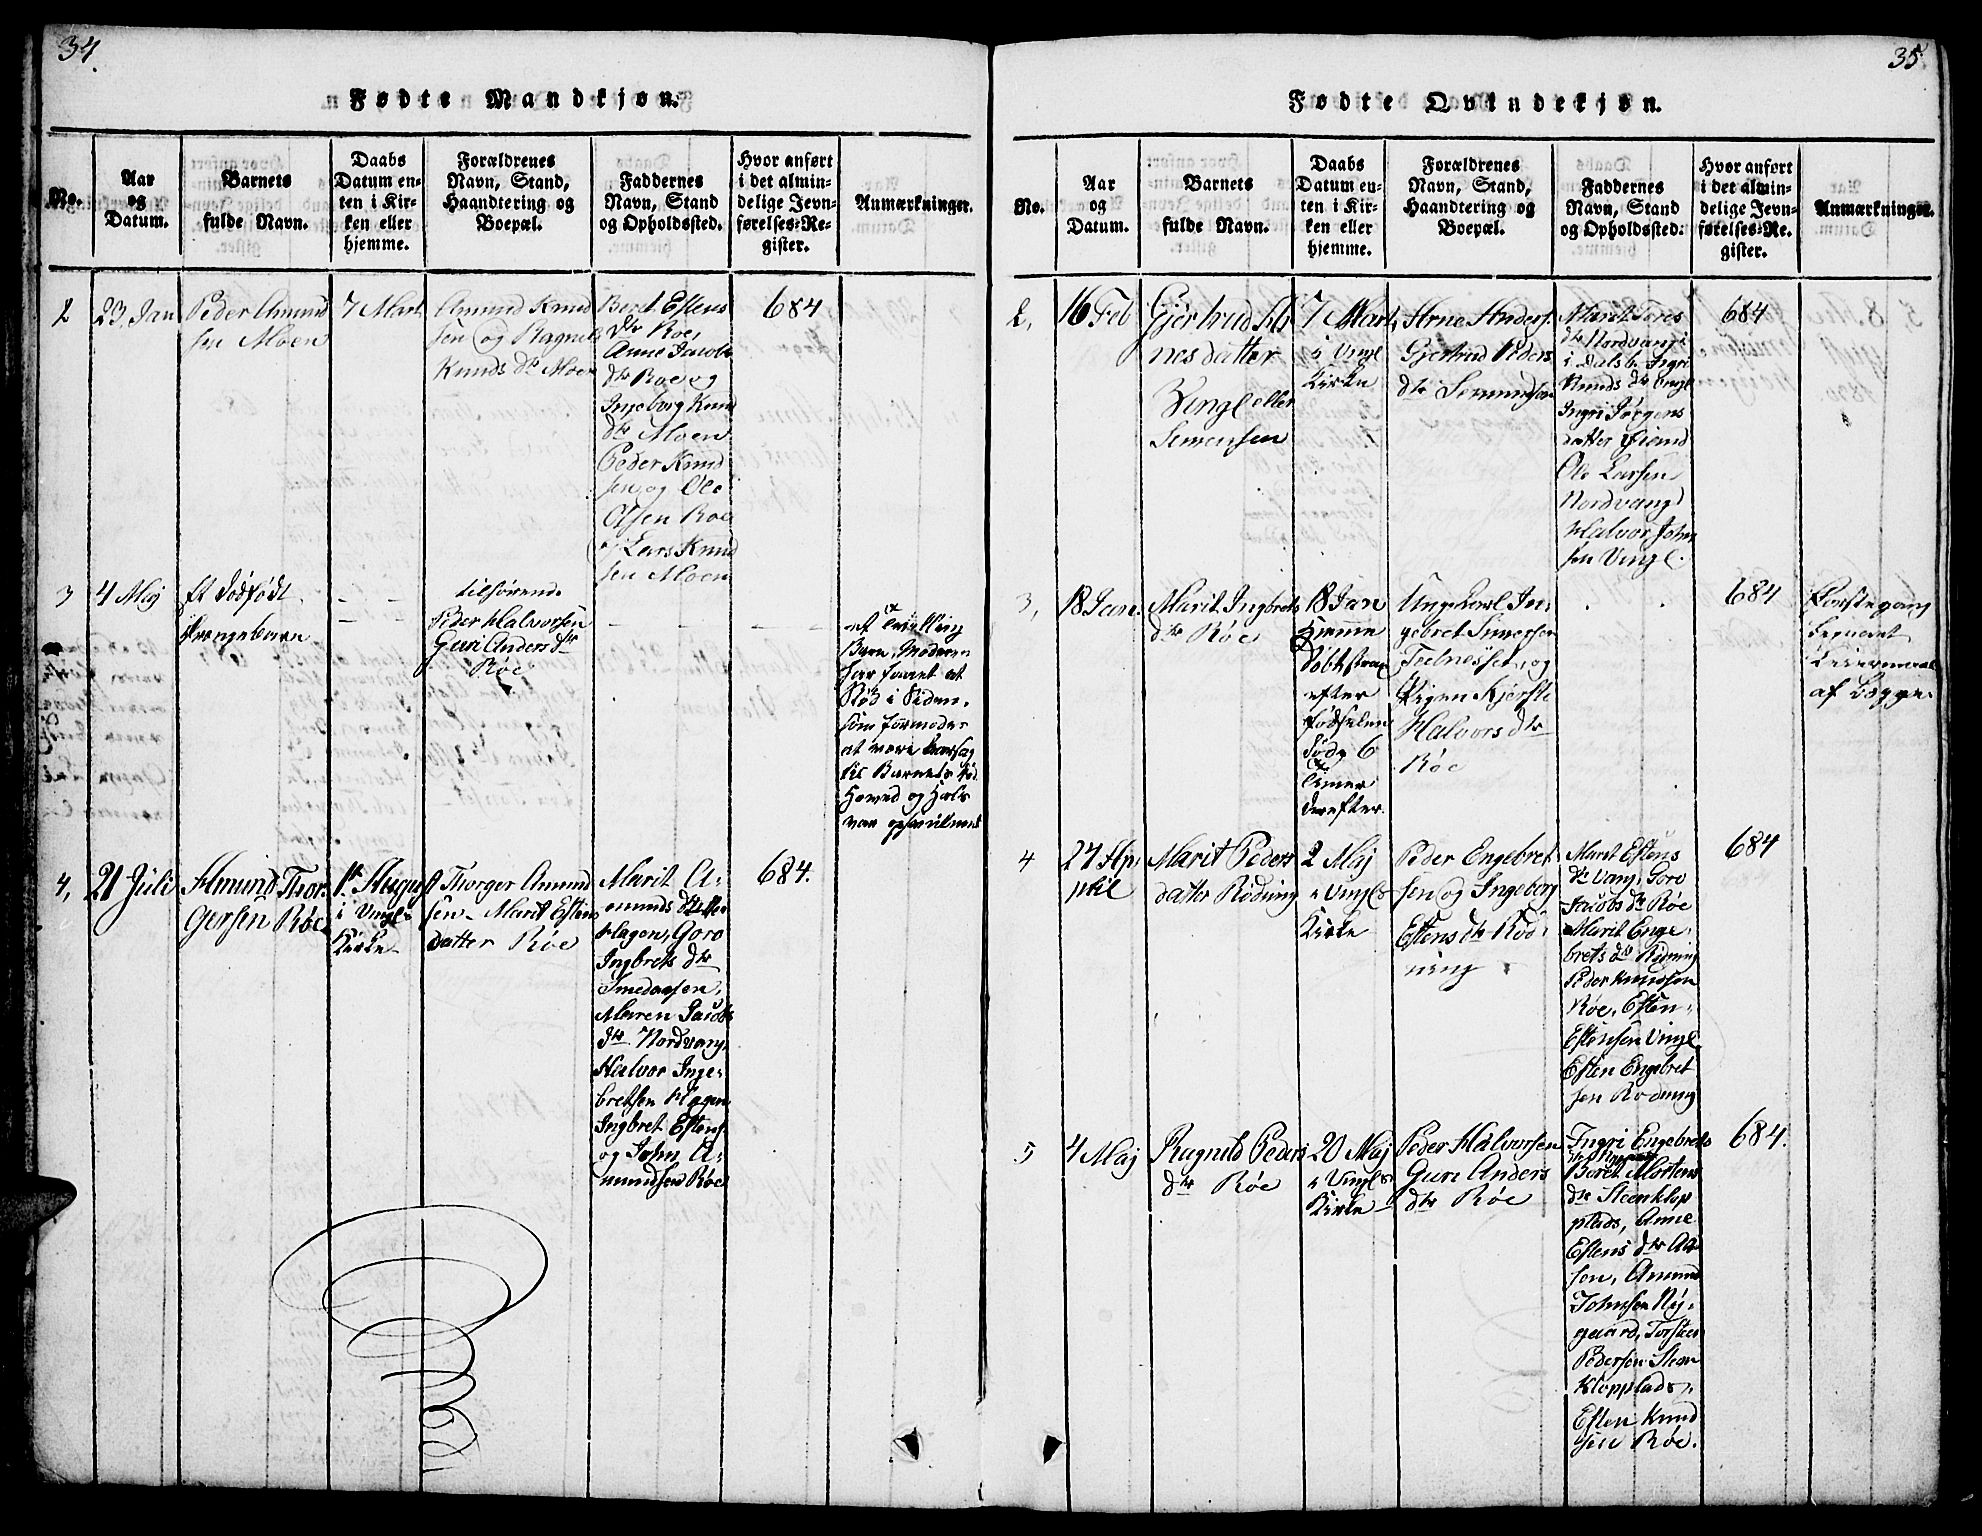 34.
Fødte Mandkjøn.
No.
Aar
og
Datum.
Barnets
fulde Navn.
Daabs
Datum en-
ten i Kir-
ken eller
hjemme.
Forældrenes
Navn, Stand,
Haandtering og
Boepæl.
Faddernes
Navn, Stand
og Opholdssted.
Hvor anført
i det almin-
delige Jevn-
førelses-Re-
gister.
Anmærkninger.
2
23, Jan
Peder Amund
sen Moen
7 Mart
Amund Knud
sen og Ragnild
Knuds dr Moen
Beret Estens
dr Roe,
Anne Jacobs
dtr Roe og
Ingeborg Knud
dtr Moen
Peder Knud
sen og Ole
Olsen Roe
og Lars Knud
sen Moen
684
3
4 Maj
et dödfödt
Drengebarn
tilhörende
Peder Halvorsen
Guri Anders dtr
Röe
et Tvilling
Barn, Moderen
har faaet et
Stöd i Siden,
som formodes
at være Aarsag
til Barnets Död
Hoved og Hals
var
4,
21 Juli
Amund Thor-
gersen Röe
1te August
i Vingl-
Kirke
Thorger Amund
sen- Marit Estens
datter Röe
Marit A-
munds datter
Hagen, Goro
Ingbrets dtr
Smedaasen,
Maren Jacobs
dtr Nordvang,
Halvor Inge-
bretsen Hagen
Ingbret Estens.
og John A-
mundsen Röe
684.
35.
Fødte Qvindekjøn.
No.
Aar
og
Datum.
Barnets
fulde Navn.
Daabs
Datum en-
ten i Kir-
ken eller
hjemme.
Forældrenes
Navn, Stand,
Haandtering og
Boepæl.
Faddernes
Navn, Stand
og Opholdssted.
Hvor anført
i det almin-
delige Jevn-
førelses-Re-
gister.
Anmærkninger.
2,
16 Feb
Gjertrud Ar
nesdatter
Vingl eller
Simensen
7 Mart,
i Vingl
Kirke
Arne Anders.
Gjertrud Peders
dtr
Marit Tores
dtr Nordvang
i Dalsb. Ingri
Knuds dtr Vingl
Ingri Jörgens
datter
Ole Larsen
Nordvang
Halvor John
sen Vingl.
684
3,
18 Jan.
Marit Ingbrets
dtr Röe
18 Jan
Hjemme
Döbt strax
efter
födselen
döde 6
Timer
derefter.
Ungekarl In-
gebret Simersen
og
Pigen Kjersti
Halvors dtr
Röe
684
Förstegang
begaaet
Leiermaal
af begge.
4
27 Ap-
pril
Marit Peders
datter Rödning
2 Maj
i Vingls
Kirke
Peder Engebret
sen og Ingeborg
Estens dtr Röd-
ning
Maret Estens
dtr Vang, Goro
Jacobs dtr Röe
Marit Enge-
brets dtr Rödning
Peder Knudsen
Röe, Esten
Estensen Vingl,
Esten Engebret
sen Rödning
684
5
4 Maj
Ragnild Peders
dtr Röe
20 Maj
i Vingls
Kirke
Peder Halvorsen
Gure Anders
dtr Röe
Ingri Engebrets
Beret Mortens
dtr Steenklop
plads, Anne
Estens dtr Aa
sen, Amund
Johnsen Ny-
gaard, Torsten
Pedersen Steen
klopplads,
Esten Knud
sen Röe.
684.